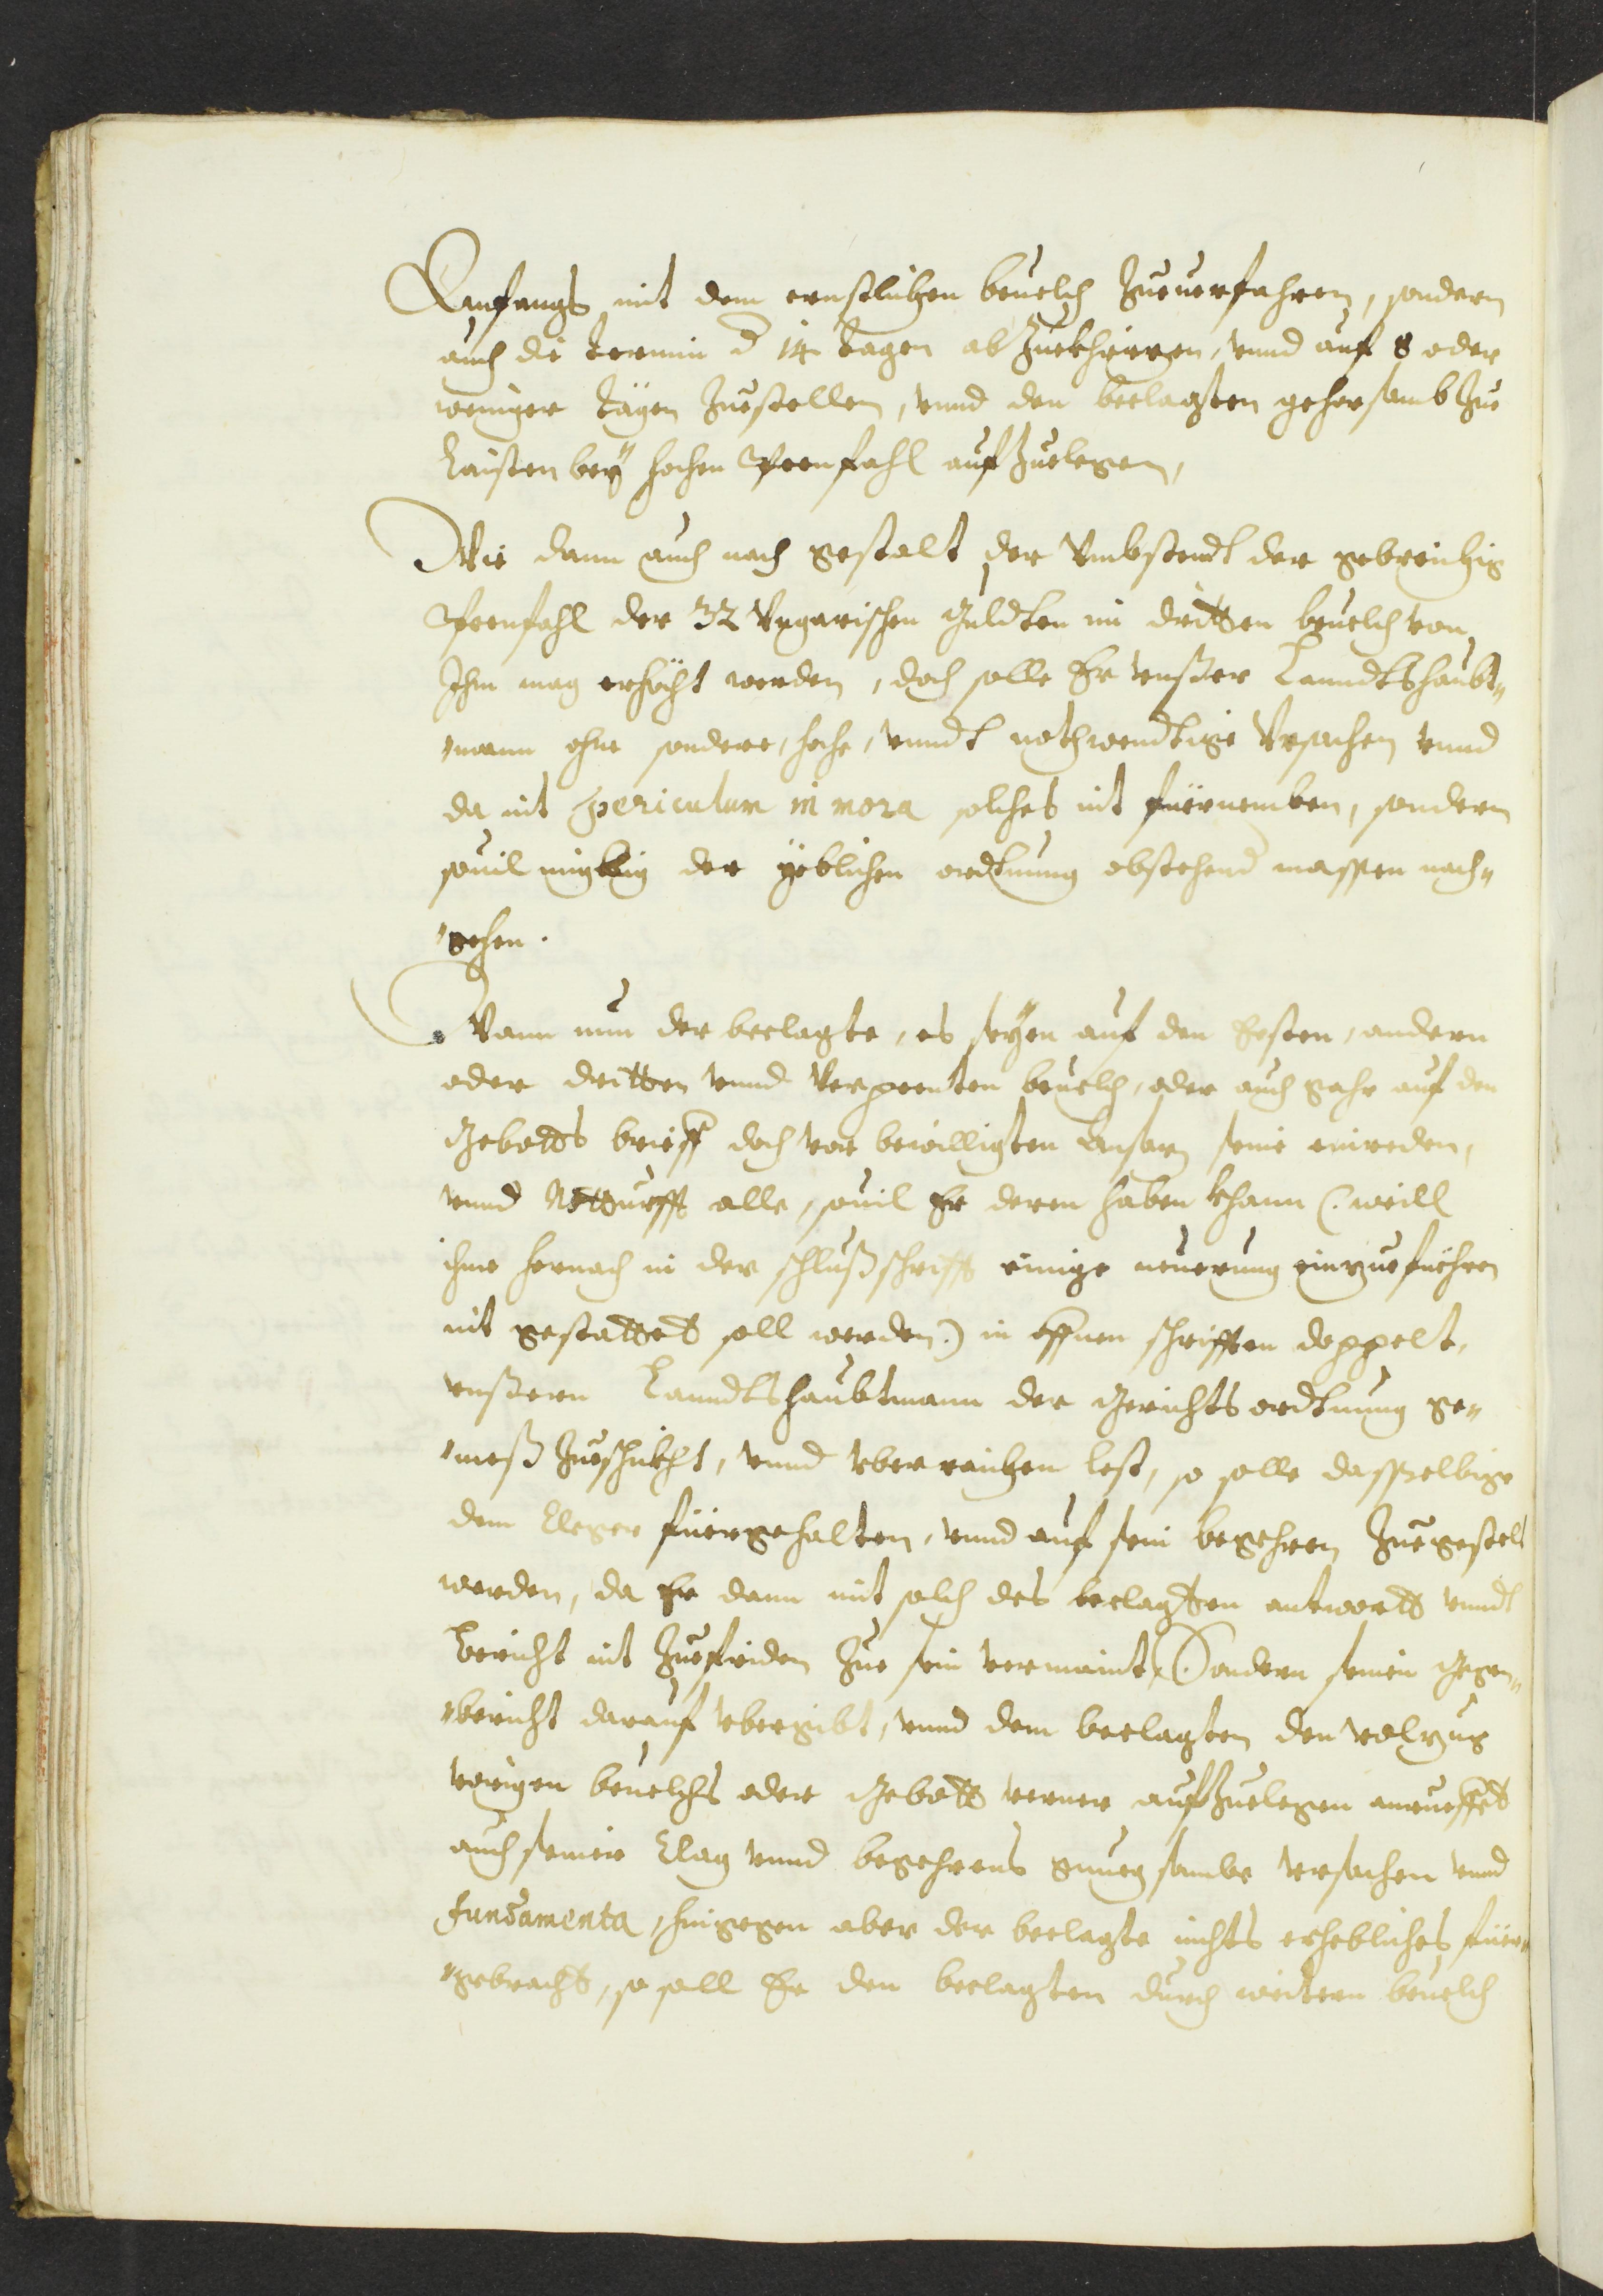 Anfangs mit dem ernstlichen beuelch Zueuerfahren, sondern
auch die termin d 14 tagen ab Zuekhirzen, vnnd auf 8 oder
weniger tägen Zuestellen, vnnd den beclagten gehorsamb Zue
Laisten beÿ hohen Peenfahl aufZuelegen,
Wie dann auch nach gestalt der Vmbstendt der gebreichig
Peenfahl der 32 Vngarischen Guldten im dritten beuelch von
Ihm mag erhöcht werden, doch solle Er vnßer Lanndtshaubt„
„mann ohne sondere, hohe, vnndt nothwendtige Vrsachen vnnd
da nit periculum in mora solches nit fürnemben, sondern
souil miglig der yeblichen ordtnung obstehend massen nach„
„gehen.
Wann nun der beclagte, es seÿen auf den Ersten, andern
oder dritten vnnd Verpeenten beuelch, oder auch gahr auf den
Gebotts brieff doch vor bewilligten Ansaz seine einreden,
vnnd Notturfft alle, souil Er deren haben khann (: weill
ihme hernach in der schlußschrifft einige neuerung einzueführen
nit gestattet soll werden :) in offnen schrifften doppelt,
vnßern Lanndtshaubtmann der Gerichts ordtnung ge„
„meß Zueschikht, vnnd vberraichen lest, so solle dasselbige
dem Cleger fürgehalten, vnnd auf sein begehren Zuegestelt
werden, da Er dann mit solch des beclagten antwortt vnndt
bericht nit Zuefriden Zue sein vermaint, Sondern seinen Gegen„
„bericht darauf vbergibt, vnnd dem beclagten den volzug
vorigen beuelchs oder Gebott verner aufZuelegen anrueffet
auch seiner Clag vnnd begehrens gnuegsambe vrsachen vnnd
fundamenta, hingegen aber der beclagte nichts erhebliches für„
„gebracht, so soll Er den beclagten durch weitern beuelch